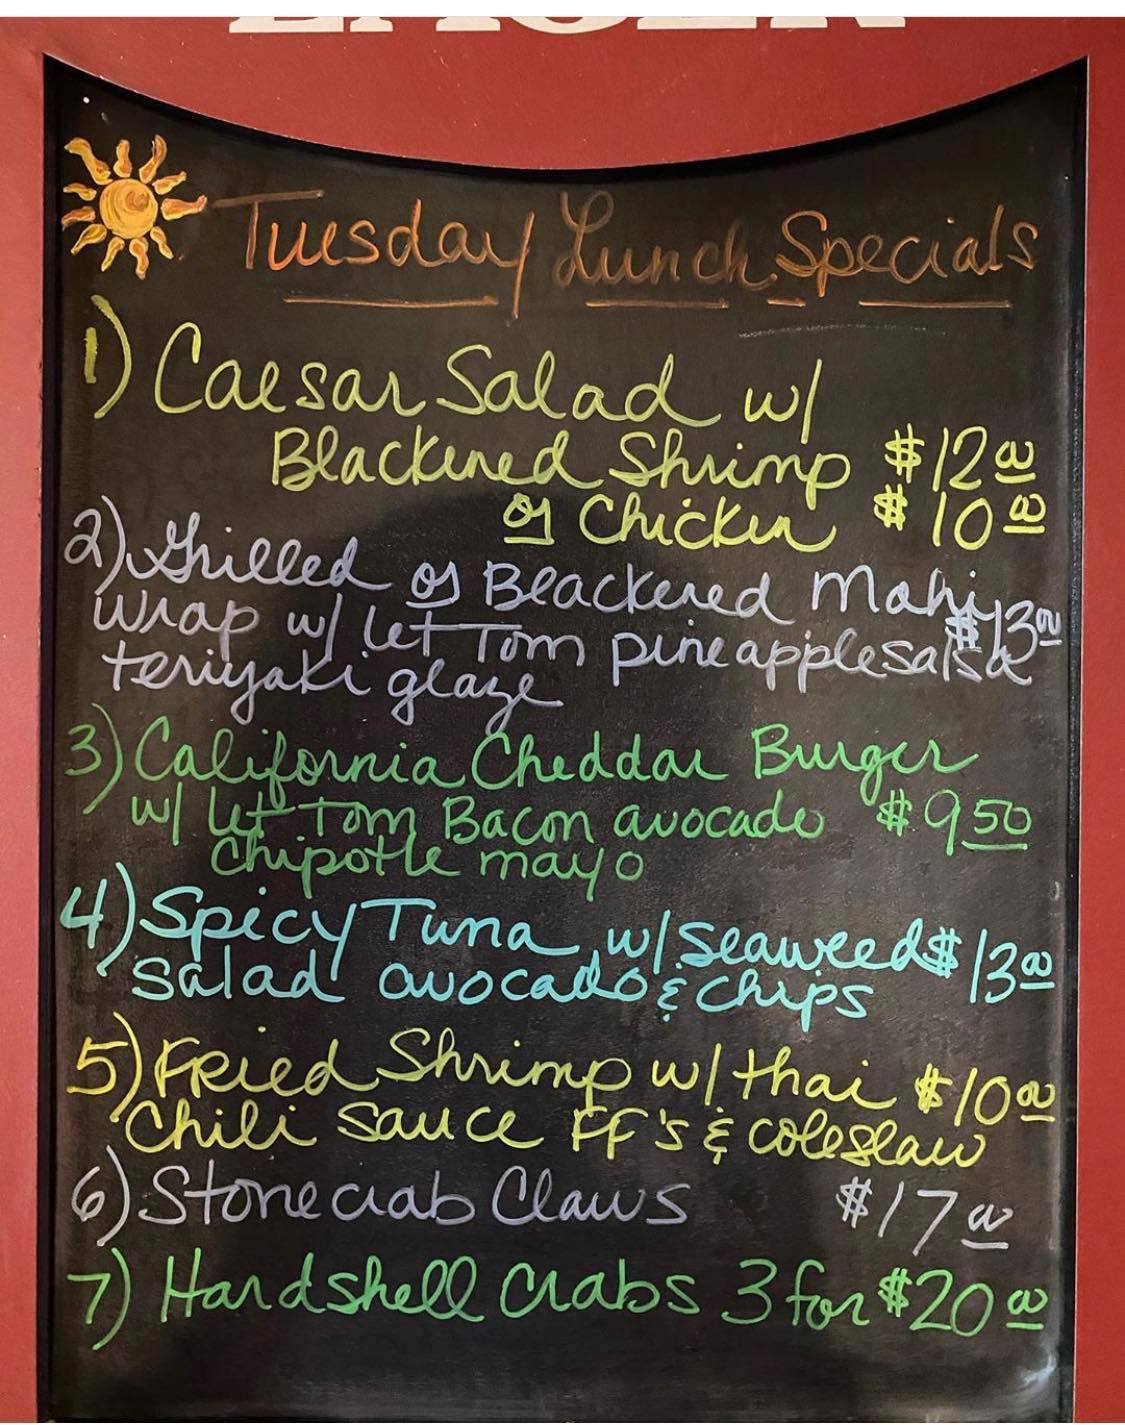 Tuesday Lunch Specials
1) Caesar Salad w/
Blackened Shrimp $12.00
or Chicken $10.00
2) Grilled or Blackened Mahi
wrap w/ let Tom pineapple salsa $13.00
teriyaki glaze
3) California Cheddar Burger
w/ let Tom Bacon avocado $9.50
chipotle mayo
4) Spicy Tuna w/ seaweed $13.00
salad avocado & chips
5) Fried Shrimp w/ thai $10.00
Chili sauce FF's & coleslaw
6) Stonecrab Claws $17.00
7) Hardshell crabs 3 for $20.00